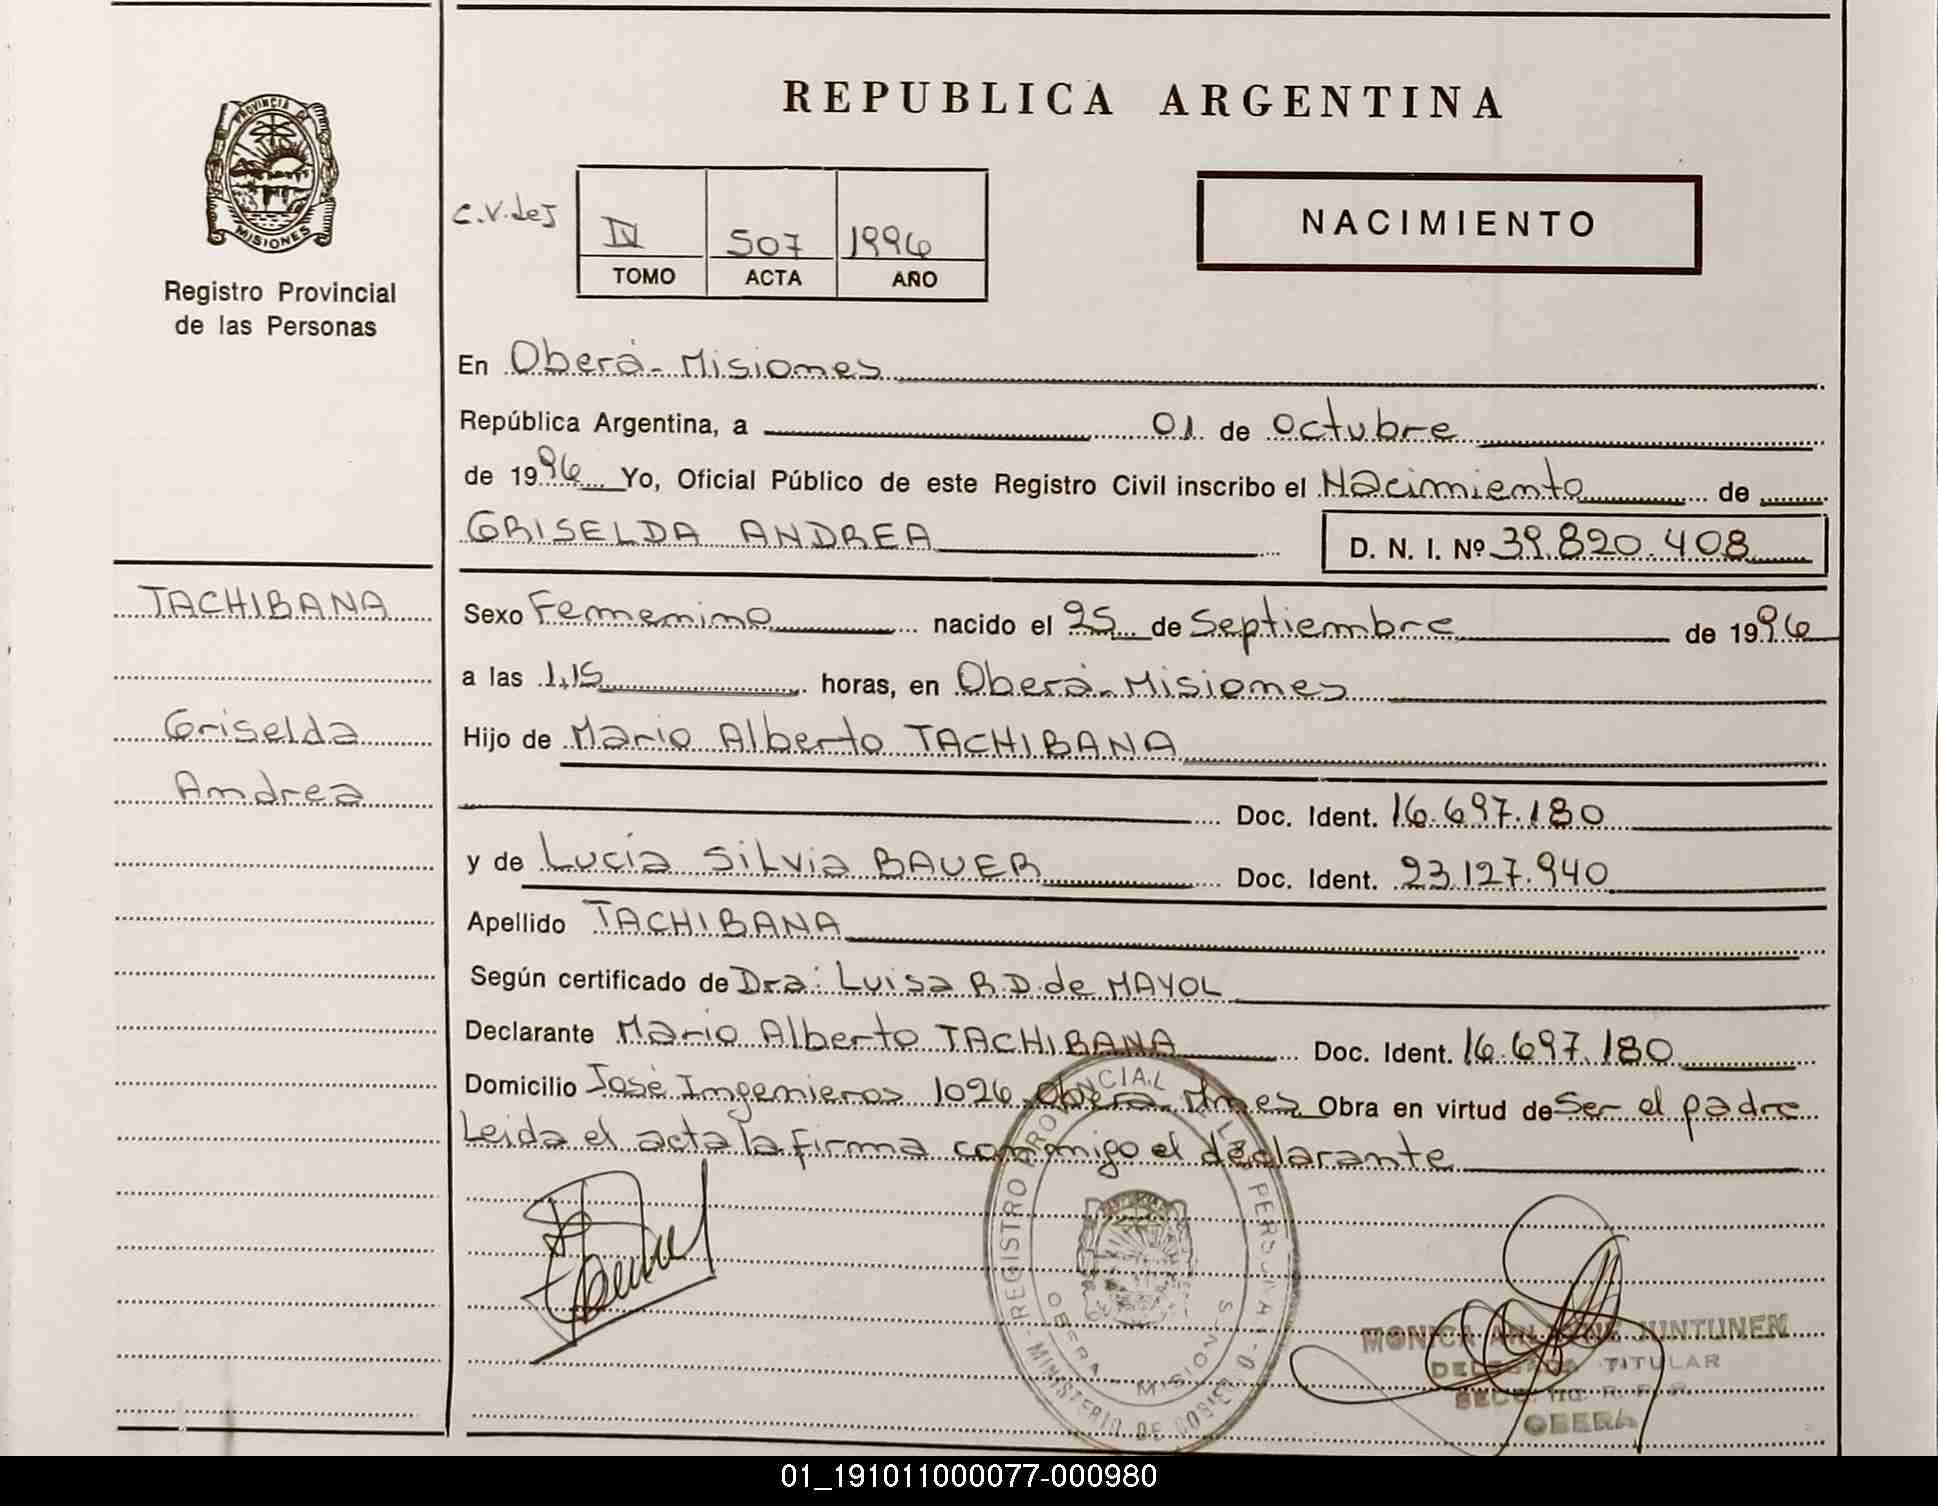 REPUBLICA ARGENTINA
PROVINCIA DE
MISIONES
Registro Provincial
de las Personas
C.V.deJ
IV 507 1996
TOMO ACTA AÑO
NACIMIENTO
En Oberá-Misiones
República Argentina, a 01 de Octubre
de 1996 Yo, Oficial Público de este Registro Civil inscribo el Nacimiento de
GRISELDA ANDREA D. N. I. Nº 39.820.408
TACHIBANA
Griselda
Andrea
Sexo Femenino nacido el 25 de Septiembre de 1996
a las 1,15 horas, en Oberá-Misiones
Hijo de Mario Alberto TACHIBANA
Doc. Ident. 16.697.180
y de Lucía Silvia BAUER Doc. Ident. 23.127.940
Apellido TACHIBANA
Según certificado de Dra: Luisa R.D. de MAYOL
Declarante Mario Alberto TACHIBANA Doc. Ident. 16.697.180
Domicilio José Ingenieros 1026 Oberá Mnes Obra en virtud de Ser el padre
Leida el acta la firma conmigo el declarante
REGISTRO PROVINCIAL
MINISTERIO DE GOBIERNO
OBERA - MISIONES
MONICA JUNTUNEN
DELEGADA TITULAR
OBERA
01_191011000077-000980